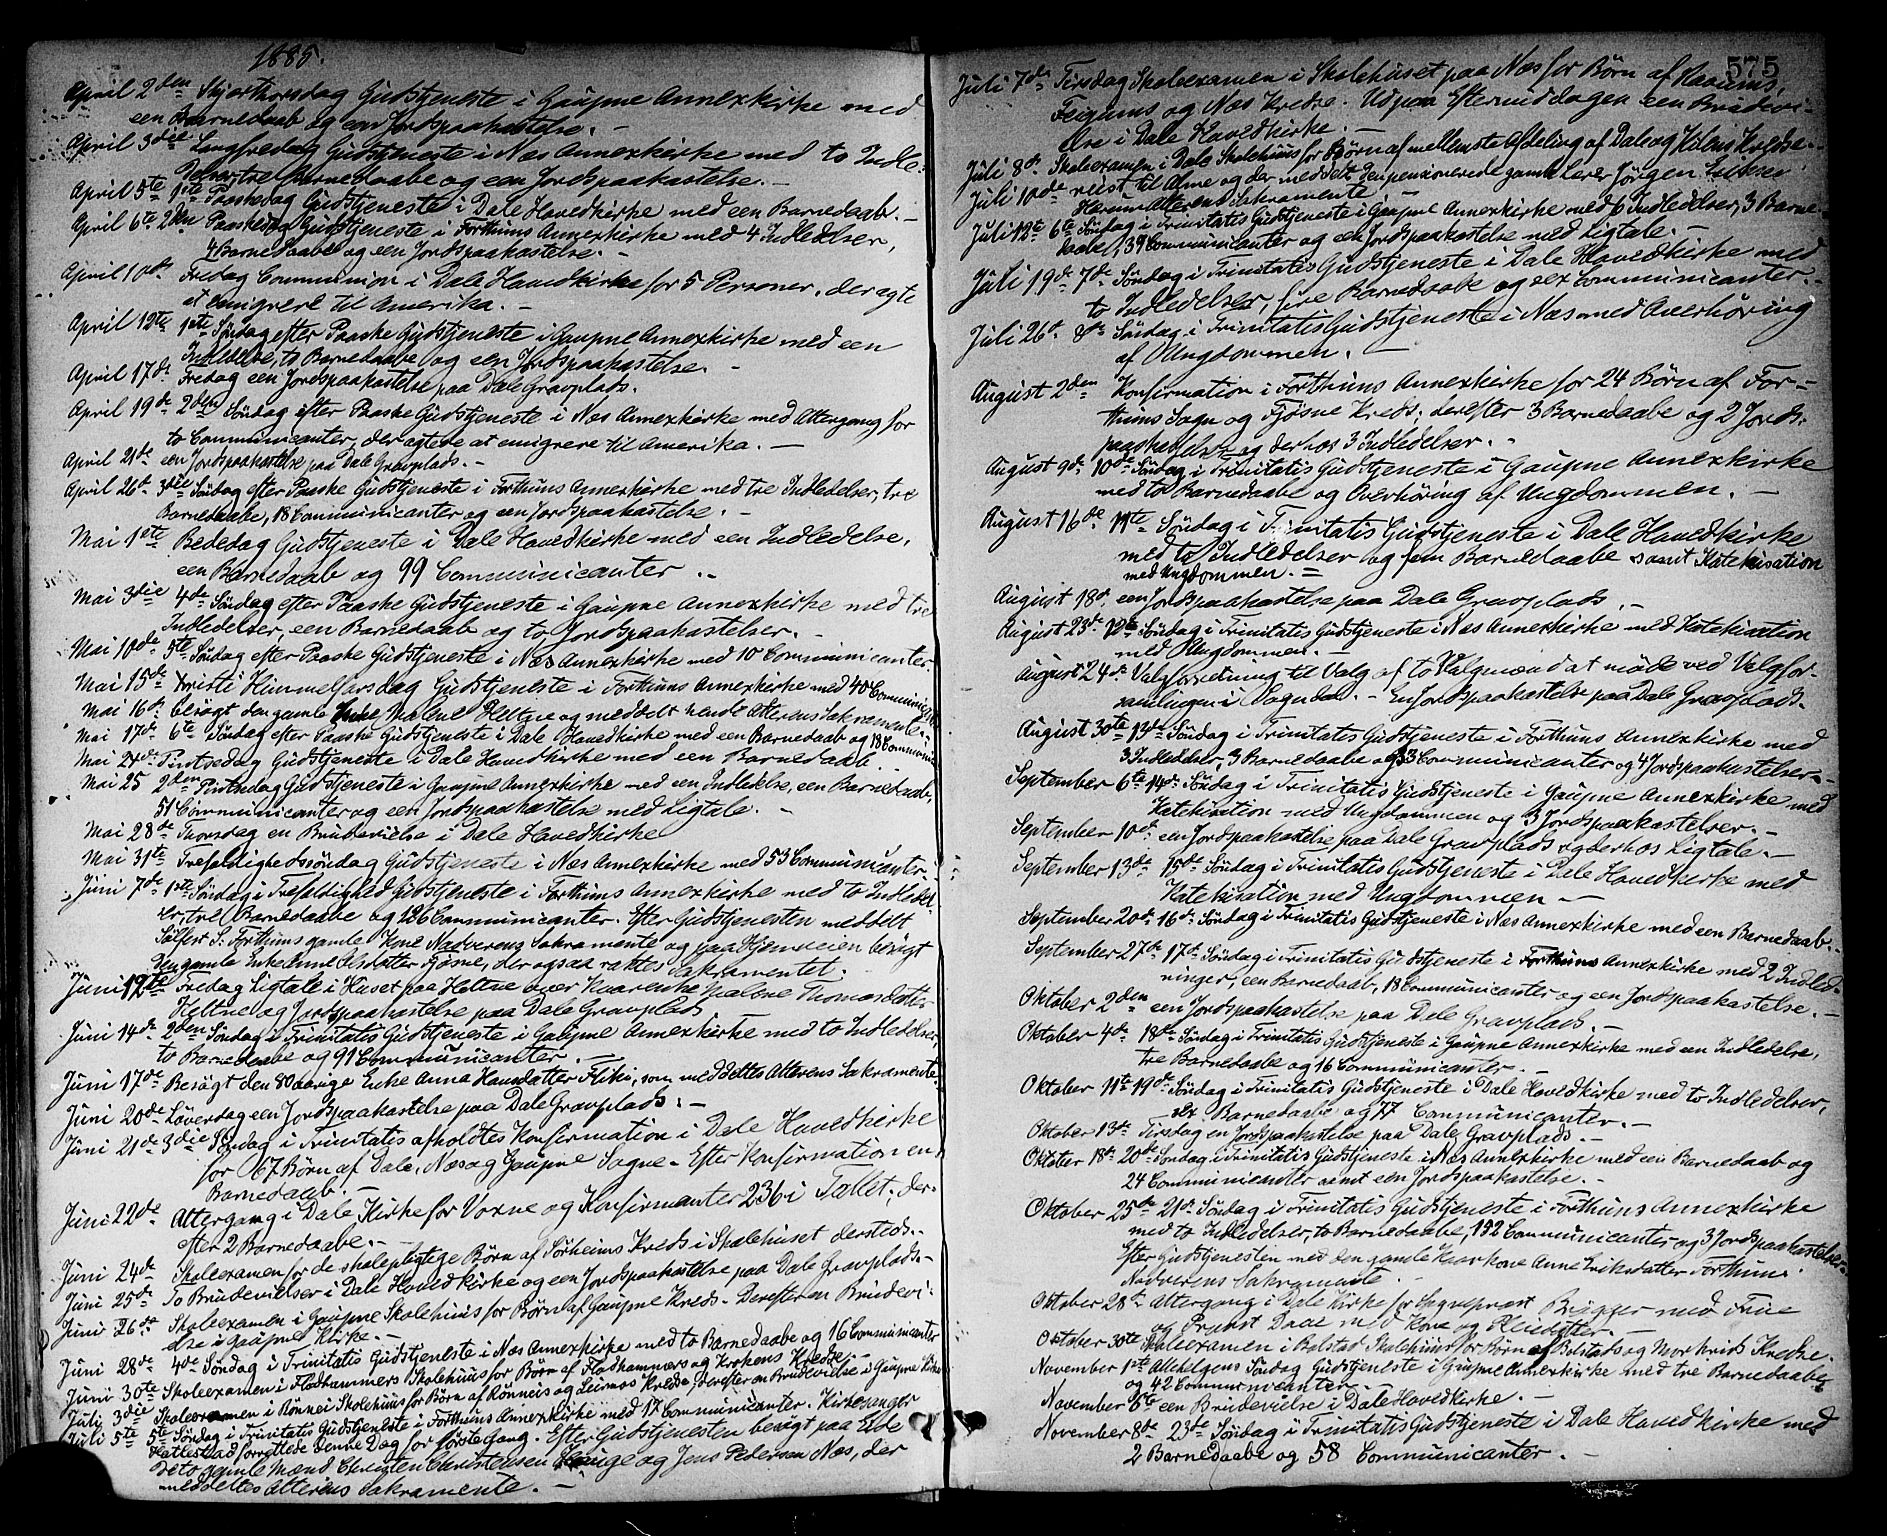 1885.
April 2den Skjærthorsdag Gudstjeneste i Gaupne Annexkirke med
een Barnedaab og een Jordspaakastelse. –
April 3die Langfredag Gudstjeneste i Næs Annexkirke med to Indle-
delser tre Barnedaabe og een Jordspaakastelse. –
April 5te 1ste Paaskedag Gudstjeneste i Dale Hovedkirke med een Barnedaab. –
April 6te 2den Paaskedag Gudstjeneste i Forthuns Annexkirke med 4 Indledelser,
4 Barnedaabe og een Jordspaakastelse. –
April 10de Fredag Communion i Dale Hovedkirke for 5 Personer, der agte
at emigrere til Amerika. –
April 12te 1ste Søndag efter Paaske Gudstjeneste i Gaupne Annexkirke med een
Indledelse, to Barnedaabe og een Jordspaakastelse. –
April 17de Fredag een Jordspaakastelse paa Dale Gravplads.
April 19de 2den Søndag efter Paaske Gudstjeneste i Næs Annexkirke med Altergang for
to Communicanter, der agtede at emigrere til Amerika. –
April 21de een Jordspaakastelse paa Dale Gravplads. –
April 26de 3die Søndag efter Paaske Gudstjeneste i Forthuns Annexkirke med tre Indledelser, tre
Barnedaabe, 18 Communicanter og een Jordspaakastelse. –
Mai 1ste Bededag Gudstjeneste i Dale Hovedkirke med een Indledelse,
een Barnedaab og 99 Communicanter. –
Mai 3die 4de Søndag efter Paaske Gudstjeneste i Gaupne Annexkirke med tre
Indledelser, een Barnedaab og to Jordspaakastelser. –
Mai 10de 5te Søndag efter Paaske Gudstjeneste i Næs Annexkirke med 10 Communicanter.
Mai 15de Kristi Himmelfarsdag Gudstjeneste i Forthuns Annexkirke med 40 Communicanter
Mai 16de besøgt den gamle Enke Malene Heltne og meddelt hende Alterens Sakramente. –
Mai 17de 6te Søndag efter Paaske Gudstjeneste i Dale Hovedkirke med een Barnedaab og 18 Communic.
Mai 24de Pintsedag Gudstjeneste i Dale Hovedkirke med een Barnedaab. –
Mai 25 2den Pintsedag Gudstjeneste i Gaupne Annexkirke med een Indledelse, een Barnedaab,
51 Communicanter og een Jordspaakastelse med Ligtale. –
Mai 28de Thorsdag en Brudevielse i Dale Hovedkirke
Mai 31te Trefoldighedssøndag Gudstjeneste i Næs Annexkirke med 53 Communicanter. –
Juni 7de 1ste Søndag i Trefoldighed Gudstjeneste i Forthuns Annexkirke med to Indledel-
ser, tre Barnedaabe og 126 Communicanter. Efter Gudstjenesten meddelt
Sølfest S. Forthuns gamle Kone Nadverens Sakramente og paa Hjemveien besøgt
den gamle Enke Anne Olsdatter Fjøsne, der ogsaa raktes Sakramentet.
Juni 12te Fredag Ligtale i Huset paa Heltne over Kaarenke Malene Thomasdatter
Heltne og Jordspaakastelse paa Dale Gravplads
Juni 14de 2den Søndag i Trinitatis Gudstjeneste i Gaupne Annexkirke med to Indledelser,
to Barnedaabe og 91 Communicanter. –
Juni 17de Besøgt den 80 aarige Enke Anna Hansdatter Flikei, som meddeltes Alterens Sakramente.
Juni 20de Løverdag een Jordspaakastelse paa Dale Gravplads. –
Juni 21de 3die Søndag i Trinitatis afholdtes Konfirmation i Dale Hovedkirke
for 67 Børn af Dale, Næs og Gaupne Sogne – Efter Konfirmationen en
Barnedaab. –
Juni 22de Altergang i Dale Kirke for Voxne og Konfirmanter 236 i Tallet; der-
efter 2 Barnedaabe. –
Juni 24de Skoleexamen for de skolepligtige Børn af Sørheims Kreds i Skolehuset dersteds. –
Juni 25de To Brudevielser i Dale Hovedkirke og een Jordspaakastelse paa Dale Gravplads. –
Juni 26de Skoleexamen i Gaupne Skolehuus for Børn af Gaupne Kreds – Derefter en Brudevi-
else i Gaupne Kirke. –
Juni 28de 4de Søndag i Trinitatis Gudstjeneste i Næs Annexkirke med to Barnedaabe og 16 Communicanter
Juni 30te Skoleexamen i Flodhammers Skolehuus for Børn af Flodhammers og Krokens Kredse.
Juli 3die Skoleexamen i Rønnei Skolehuus for Børn af Rønneis og Leirmos Kredse, derefter en Brudevielse i Gaupne Kirke
Juli 5te 5te Søndag i Trinitatis Gudstjeneste i Forthuns Annexkirke med 17 Communicanter. Kirkesanger
Hatlestad forrettede denne Dag for første Gang. Efter Gudstjenesten besøgt paa Eide
De to gamle Mænd Christen Christensen Hauge og Jens Pedersen Næs, der
meddeltes Alterens Sakramente. –
575
Juli 7de Tirsdag Skoleexamen i Skolehuset paa Næs for Børn af Havums,
Feigums og Næs Kredse. Ud paa Eftermiddagen een Brudevi-
else i Dale Hovedkirke. –
Juli 8de Skoleexamen i Dale Skolehuus for Børn af mellemste Afdeling af Dale og Kilens Kredse. –
Juli 10de reist til Alme og der meddelt den pensionerede gamle Lærer Jørgen Eriksen
Alterens Sakramente
Juli 12te 6te Søndag i Trinitatis Gudstjeneste i Gaupne Annexkirke med 6 Indledelser, 3 Barne-
daabe, 39 Communicanter og een Jordspaakastelse med Ligtale. –
Juli 19de 7de Søndag i Trinitatis Gudstjeneste i Dale Hovedkirke med
to Indledelser, fire Barnedaabe og sex Communicanter. –
Juli 26de 8de Søndag i Trinitatis Gudstjeneste i Næs med Overhøring
af Ungdommen. –
August 2den Konfirmation i Forthuns Annexkirke for 24 Børn af For-
thuns Sogn og Fjøsne Kreds; derefter 3 Barnedaabe og 2 Jords-
paakastelser og derhos 3 Indledelser. –
August 9de 10de Søndag i Trinitatis Gudstjeneste i Gaupne Annexkirke
med to Barnedaabe og Overhøring af Ungdommen. –
August 16de 11te Søndag i Trinitatis Gudstjeneste i Dale Hovedkirke
med to Indledelser og fem Barnedaabe samt Katekisation
med Ungdommen. =
August 18de een Jordspaakastelse paa Dale Gravplads. –
August 23de 12te Søndag i Trinitatis Gudstjeneste i Næs Annexkirke med Katekisation
med Ungdommen. –
August 24de Valgforretning til Valg af to Valgmænd at møde ved Valgfor-
samlingen i Sogndal. – Een Jordspaakastelse paa Dale Gravplads.
August 30te 13de Søndag i Trinitatis Gudstjeneste i Forthuns Annexkirke med
3 Indledelser, 3 Barnedaabe og 33 Communicanter og 4 Jordspaakastelser. –
September 6te 14de Søndag i Trinitatis Gudstjeneste i Gaupne Annexkirke med
Katekisation med Ungdommen og 3 Jordspaakastelser. –
September 10de een Jordspaakastelse paa Dale Gravplads og derhos Ligtale. –
September 13de 15de Søndag i Trinitatis Gudstjeneste i Dale Hovedkirke med
Katekisation med Ungdommen –
September 20de 16de Søndag i Trinitatis Gudstjeneste i Næs Annexkirke med een Barnedaab. –
September 27de 17de Søndag i Trinitatis Gudstjeneste i Forthuns Annexkirke med 2 Indled-
ninger, een Barnedaab, 18 Communicanter og een Jordspaakastelse. –
Oktober 2den een Jordspaakastelse paa Dale Gravplads. –
Oktober 4de 18de Søndag i Trinitatis Gudstjeneste i Gaupne Annexkirke med een Indledelse,
tre Barnedaabe og 16 Communicanter. –
Oktober 11te 19de Søndag i Trinitatis Gudstjeneste i Dale Hovedkirke med to Indledelser,
sex Barnedaabe og 17 Communicanter. –
Oktober 13de Tirsdag en Jordspaakastelse paa Dale Gravplads. –
Oktober 18de 20de Søndag i Trinitatis Gudstjeneste i Næs Annexkirke med een Barnedaab og
24 Communicanter samt een Jordspaakastelse. –
Oktober 25de 21de Søndag i Trinitatis Gudstjeneste i Forthuns Annexkirke
med to Indledelser, to Barnedaabe, 152 Communicanter og 3 Jordspaakastelser. –
Efter Gudstjenesten med den gamle Kaarkone Anne Eriksdatter Forthun
Nadverens Sakramente.
Oktober 28de Altergang i Dale Kirke for Sognepræst Brigger med Frue
og Provst Daae med Kone og Pleiedatter. –
Oktober 30te Skoleexamen i Bolstad Skolehuus for Børn af Bolstads og Morkrids Kredse.
November 1ste Allehelgens Søndag Gudstjeneste i Gaupne Annexkirke med tre Barnedaabe
og 42 Communicanter. –
November 6te een Brudevielse i Dale Hovedkirke. –
November 8de 23de Søndag i Trinitatis Gudstjeneste i Dale Hovedkirke med
2 Barnedaabe og 58 Communicanter. –